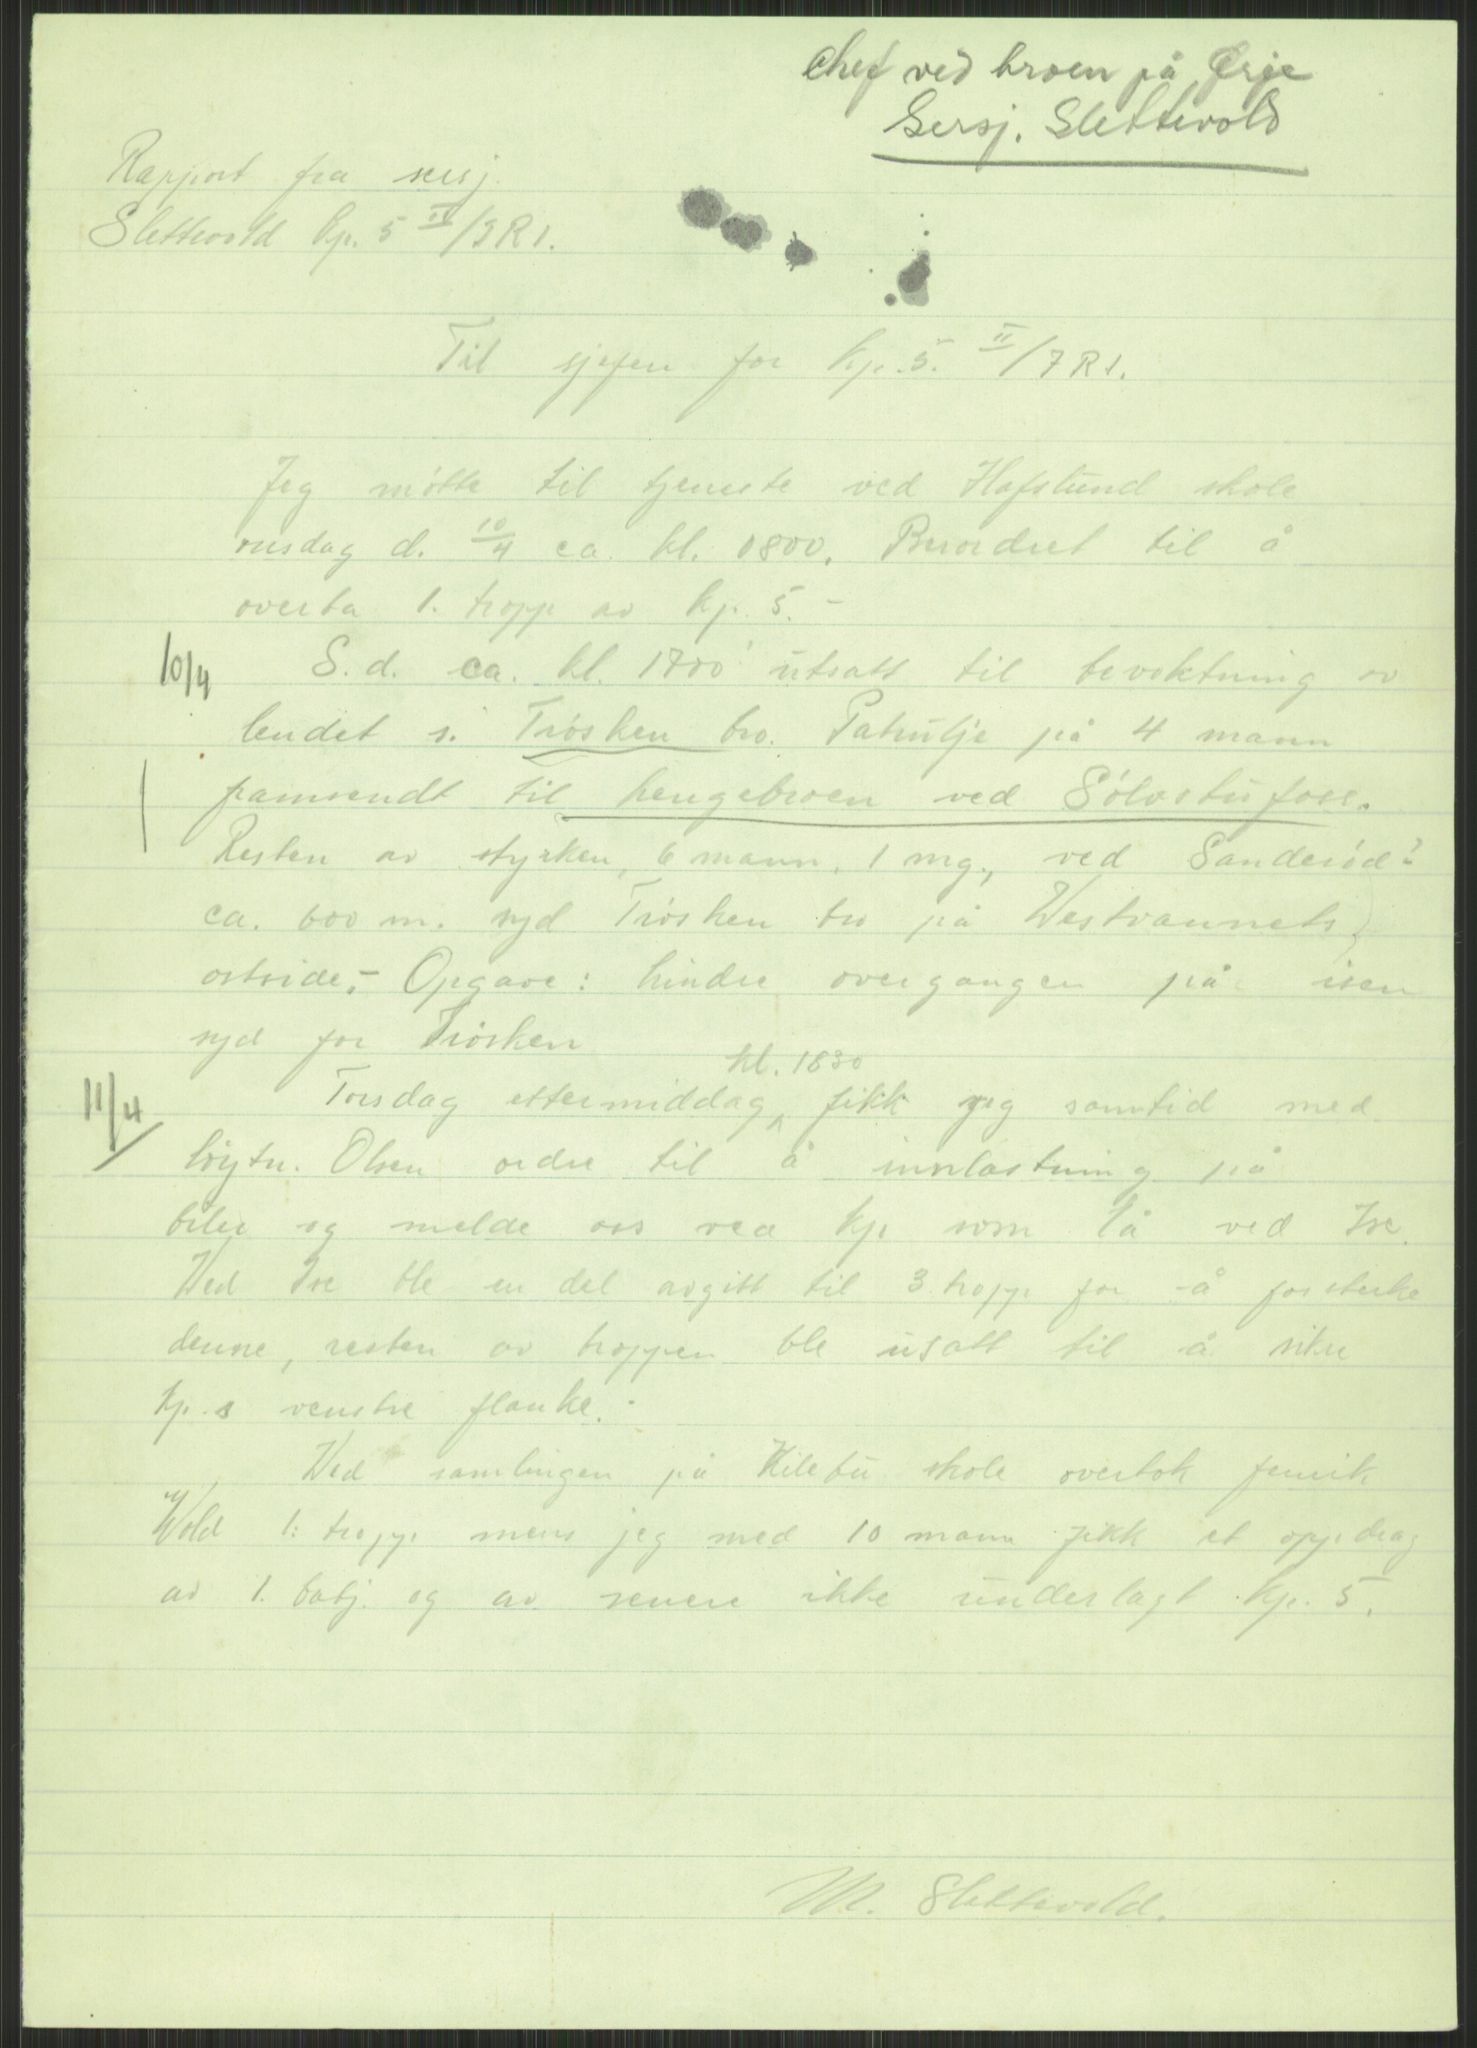 Chef ved broen på Ørje
Sersj. Slettevold
Rapport fra sersj.
Slettevold kp. 5 II/IR1.
Til sjefen for kp. 5. II/IR1.
Jeg møtte til tjeneste ved Hafslund skole
onsdag d. 10/4 ca. kl. 0800. Beordret til å
overta 1. tropp av kp. 5. –
10/4
S. d. ca. kl. 1700 utsatt til bevoktning av
lendet s. Trøsken bro. Patrulje på 4 mann
framsendt til hengebroen ved Sølvstufoss.
Resten av styrken, 6 mann, 1 mg., ved Sanderød?
ca. 600 m. syd Trøsken bro på Vestvannets
ostside. – Opgave: hindre overgangen på isen
syd for Trøsken
kl. 1830
11/4
Torsdag ettermiddag, fikk jeg samtid med
løytn. Olsen ordre til å innlastning på
biler og melde oss ved kp som lå ved Ise.
Ved Ise ble en del avgitt til 3. tropp for å forsterke
denne, resten av troppen ble usatt til å sikre
kp.s venstre flanke. –
Ved samlingen på Kilebu skole overtok fenrik
Wold 1. tropp mens jeg med 10 mann fikk et oppdrag
av 1. batj. og av senere ikke underlagt kp. 5.
M. Slettevold.